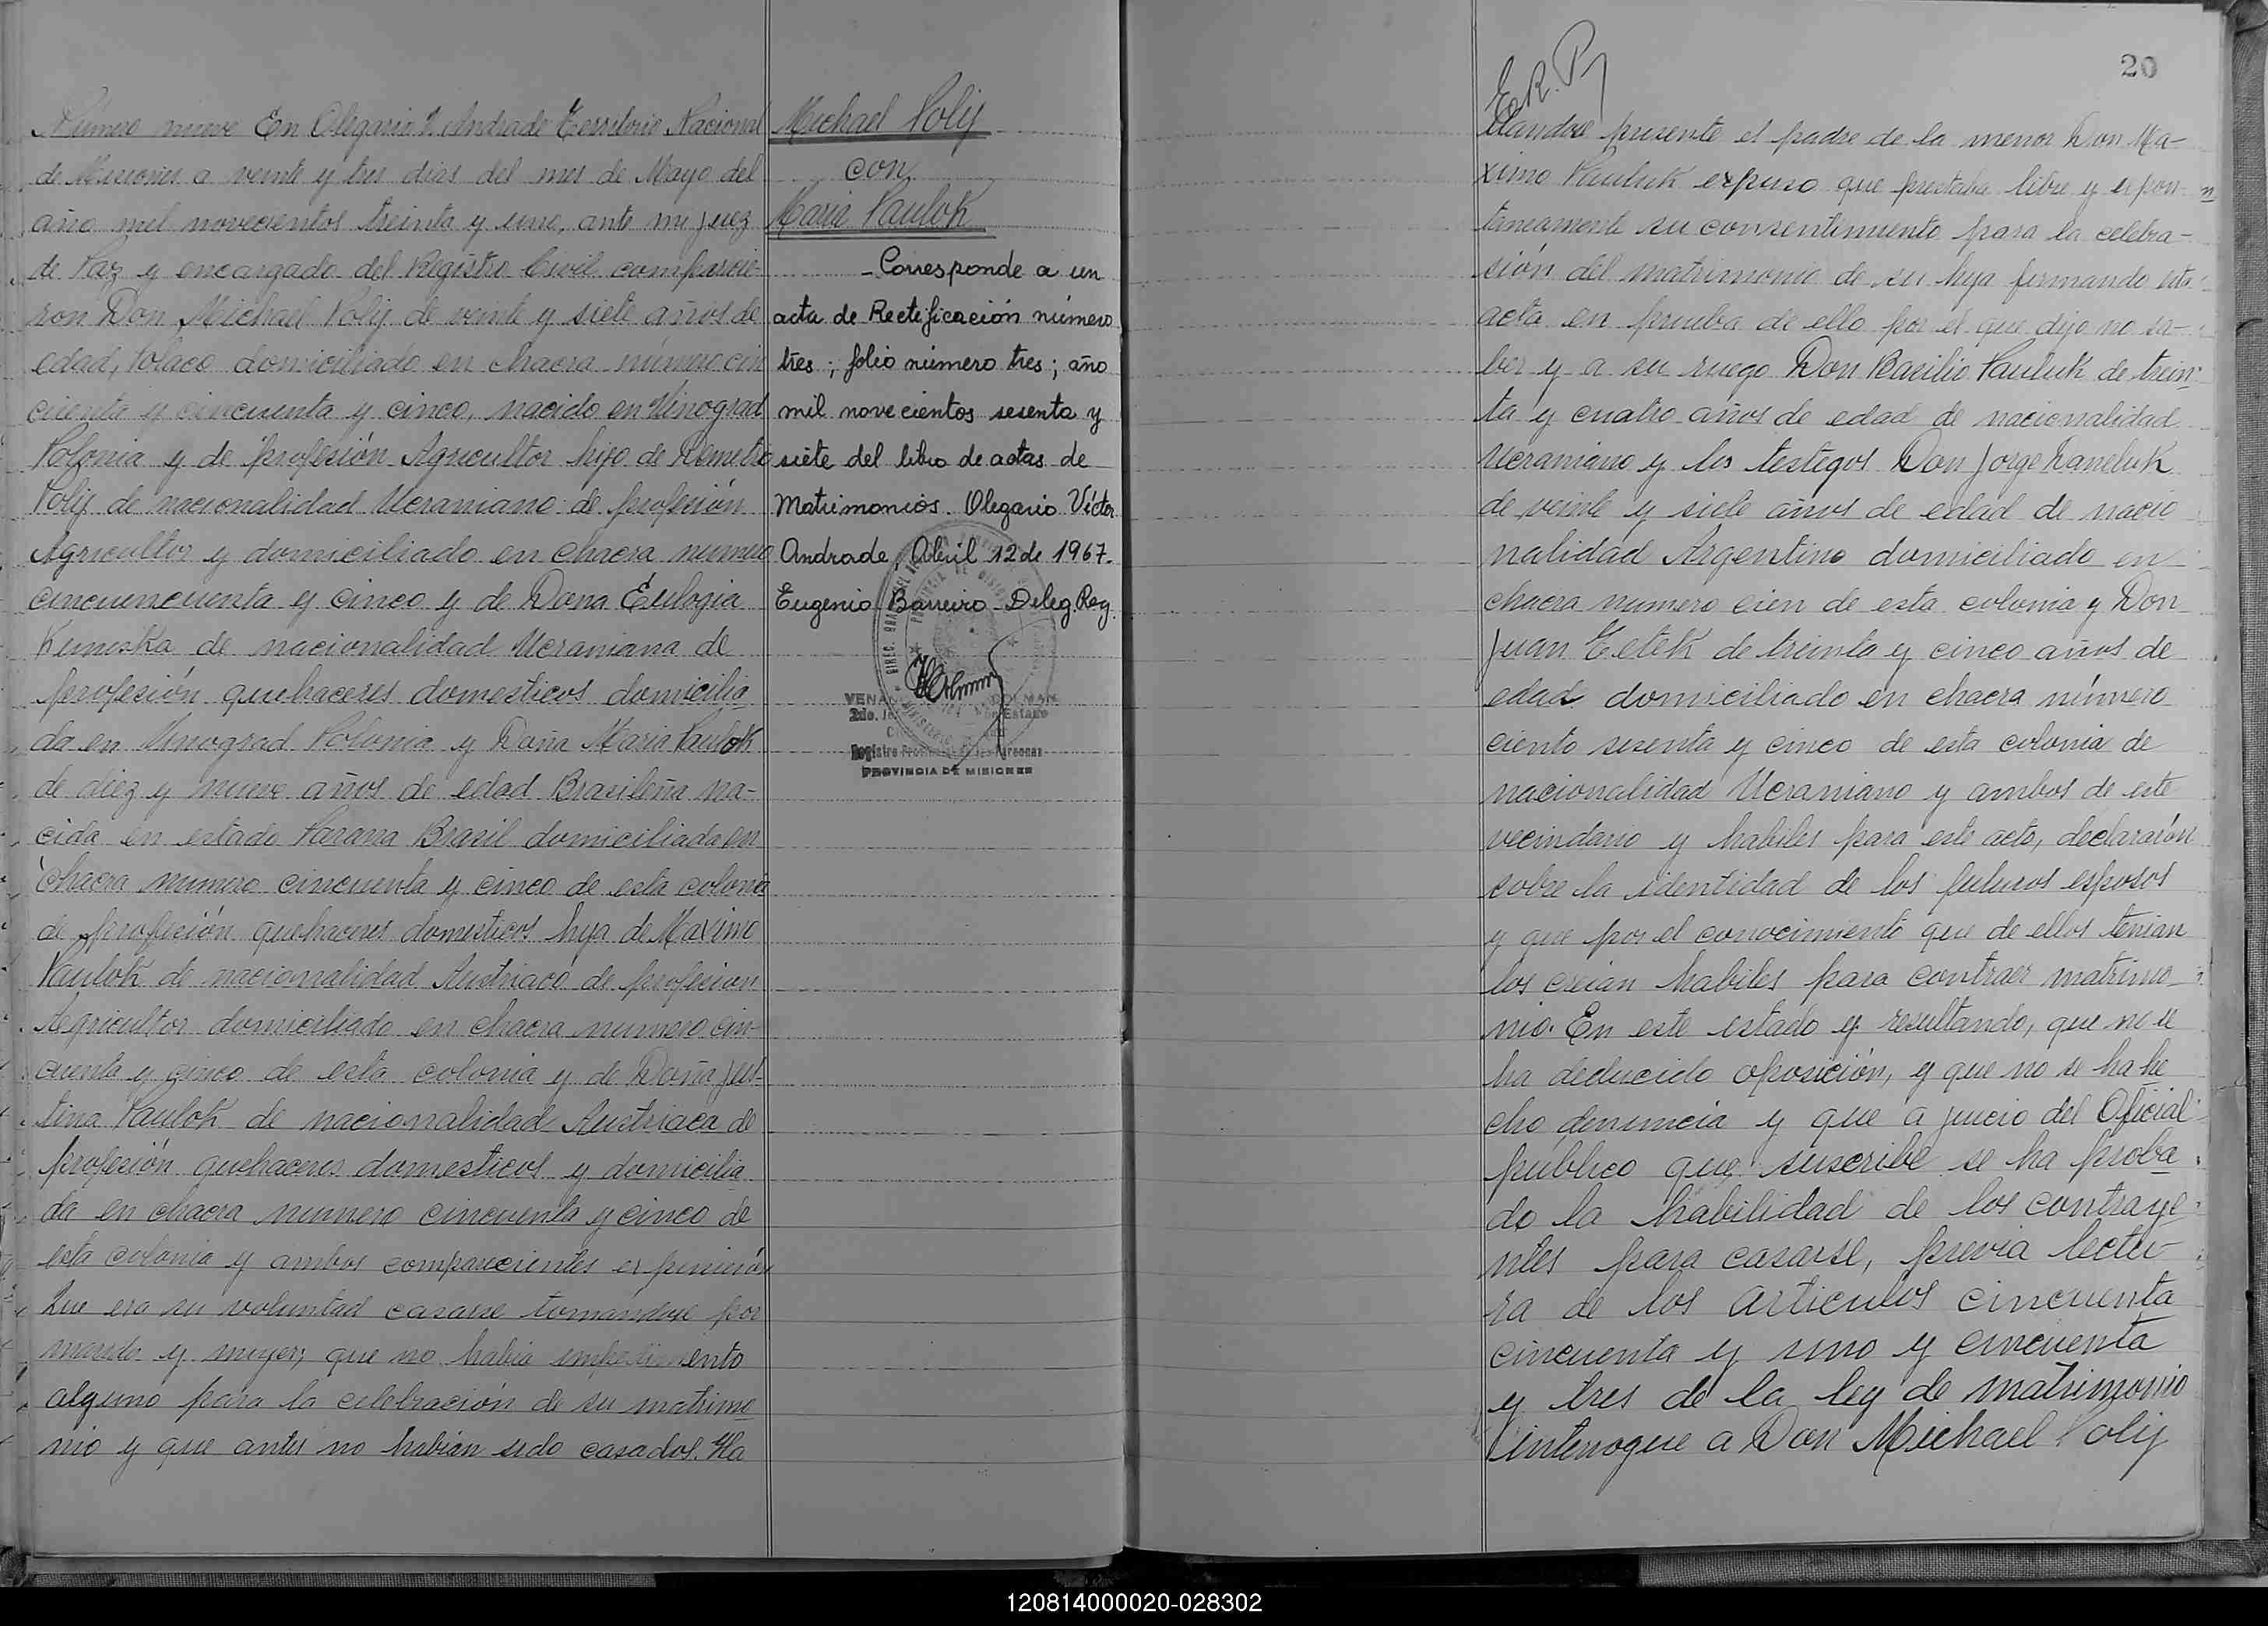 Número nueve En Olegario V. Andrade Territorio Nacional
de Misiones a veinte y tres dias del mes de Mayo del
año mil novecientos treinta y uno, ante mi Juez
de Paz y encargado del Registro Civil comparecie-
ron Don Michael Polij de veinte y siete años de
edad, Polaco domiciliado en chacra número cin
cuenta y cincuenta y cinco, nacido en Winograd
Polonia y de profesión Agricultor hijo de Demetrio
Polij de nacionalidad Ucraniano de profesión
Agricultor y domiciliado en chacra numero
cincuencuenta y cinco y de Dona Eulogia
de nacionalidad Ucraniana de
profesión quehaceres domesticos domicilia
da en Winograd Polonia y Doña Maria Paulok
de diez y nueve años de edad Brasileña na-
cida en estado Parana Brasil domiciliada en
chacra numero cincuenta y cinco de esta colonia
de profesión quehaceres domesticos hija de Maximo
Paulok de nacionalidad Austriaco de profesion
Agricultor domiciliado en chacra numero cin-
cuenta y cinco de esta colonia y de Doña Jus-
tina Paulok de nacionalidad Austriaca de
profesión quehaceres domesticos y domicilia
da en chacra numero cincuenta y cinco de
esta colonia y ambos comparecientes expusierón
Que era su voluntad casarse tomandose por
marido y mujer; que no habia impedimento
alguno para la celebración de su matrimo
nio y que antes no habian sido casados. Ha
Michael Polij
con
Maria Paulok
- Corresponde a un
acta de Rectificación número
tres; folio número tres; año
mil novecientos sesenta y
siete del libro de actas de
Matrimonios. Olegario Víctor
Andrade, Abril 12 de 1967.
Eugenio Barreiro - Deleg. Reg.
PROVINCIA DE MISIONES
20
llandose presente el padre de la menor Don Ma-
ximo Pauluk expuso que prestaba libre y expon-
taneamente su consentimiento para la celebra-
sión del matrimonio de su hija firmando esta
acta en prueba de ello por el que dijo no sa-
ber y a su ruego Don Basilio Pauluk de trein-
ta y cuatro años de edad de nacionalidad
Ucraniano y los testegos Don Jorge Daneluk
de veinte y siete años de edad de nacio
nalidad Argentino domiciliado en
chacra numero cien de esta colonia y Don
Juan Tetek de treinta y cinco años de
edad domiciliado en chacra número
ciento sesenta y cinco de esta colonia de
nacionalidad Ucraniano y ambos de este
vecindario y habiles para este acto, declararón
sobre la identidad de los futuros esposos
y que por el conocimiento que de ellos tenian
los creian habiles para contraer matrimo-
nio. En este estado y resultando, que no se
ha deducido oposición, y que no se ha he
cho denuncia y que a juicio del Oficial
publico que suscribe se ha proba
do la habilidad de los contraye
ntes para casarse, previa lectu-
ra de los articulos cincuenta
cincuenta y uno y cincuenta
y tres de la ley de matrimonio
interrogue a Don Michael Polij
120814000020-028302